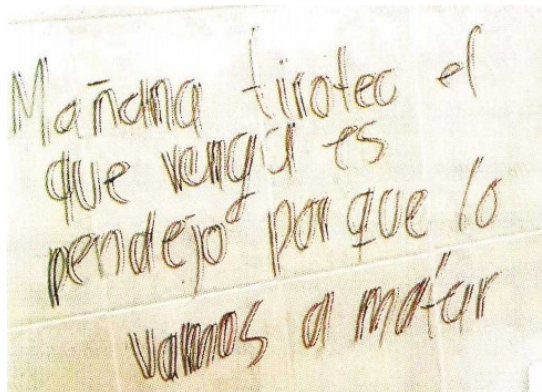 Mañana tiroteo el
que venga es
pendejo porque lo
vamos a matar